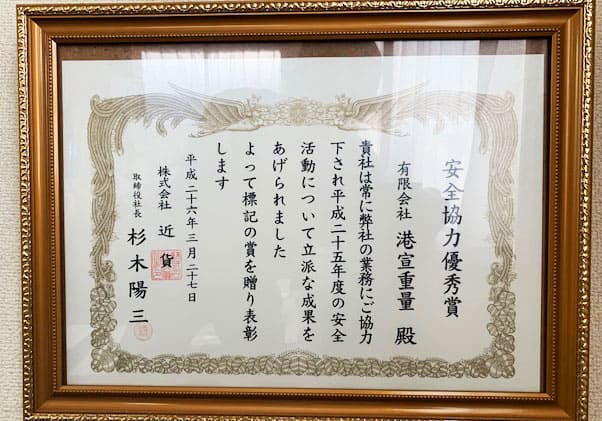 安全協力優秀賞
有限会社 港宣重量 殿
貴社は常に弊社の業務にご協力
下され平成二十五年度の安全
活動について立派な成果を
あげられました
よって標記の賞を贈り表彰
します
平成二十六年三月二十七日
株式会社 近貨
取締役社長 杉木陽三